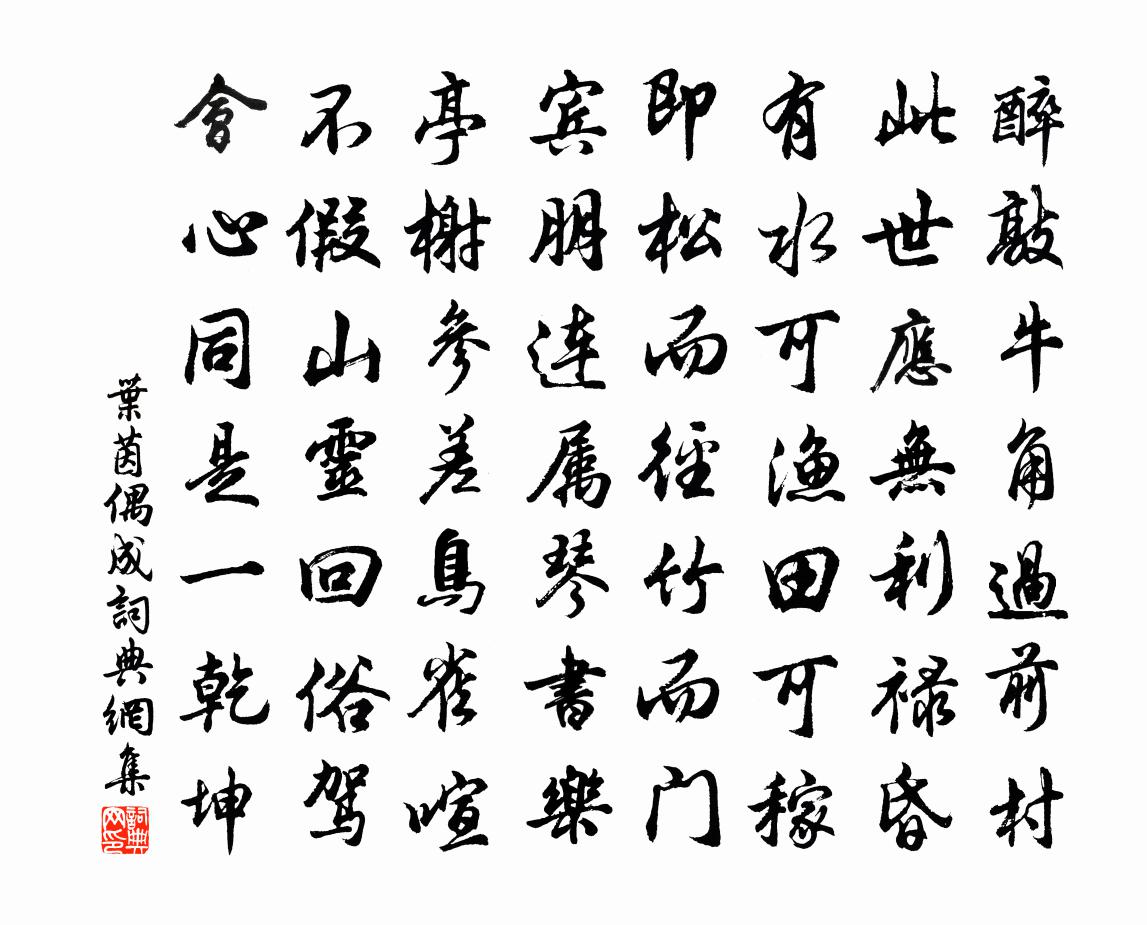 醉敲牛角過前村
此世應無利禄昏
有水可渔田可稼
即松而徑竹而门
宾朋连属琴書樂
亭榭参差鳥雀喧
不假山靈回俗驾
會心同是一乾坤
葉茵偶成詞典網集
詞典网印